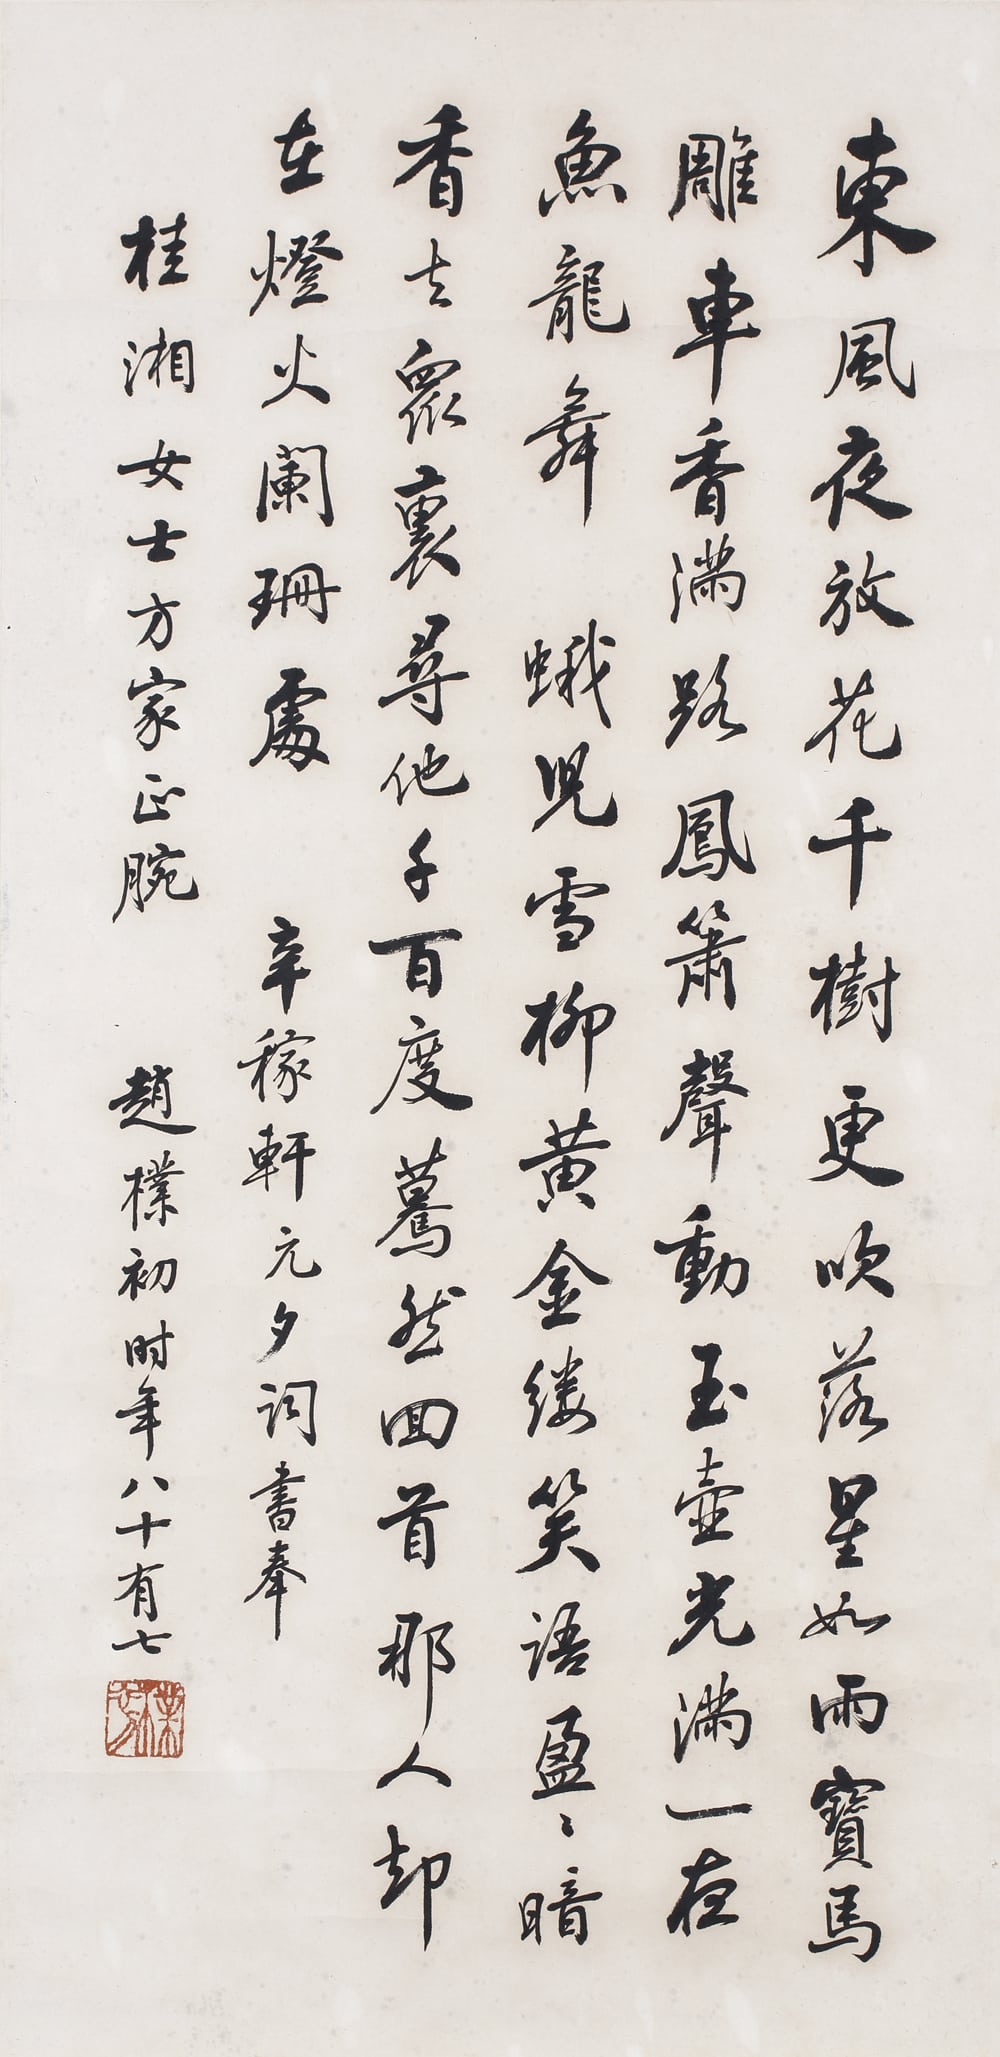 東風夜放花千樹更吹落星如雨寶馬
雕車香滿路鳳簫聲動玉壺光滿一夜
魚龍舞 蛾児雪柳黄金缕笑語盈〻暗
香去眾裏尋他千百度驀然回首那人却
在燈火闌珊處 辛稼軒元夕词書奉
桂湘女士方家正腕 趙樸初时年八十有七
樸初